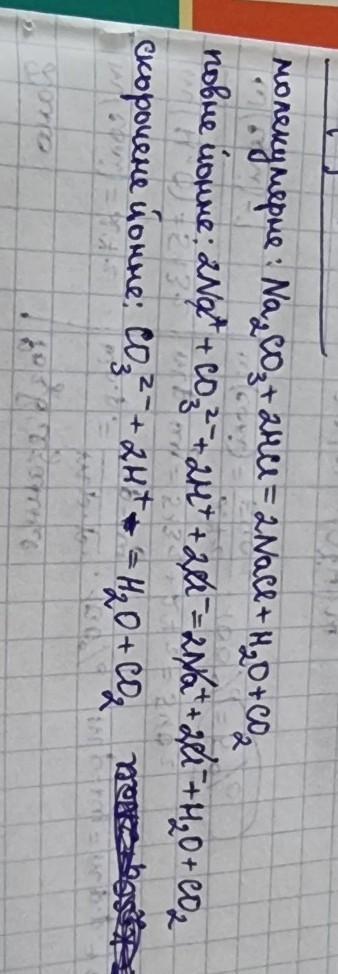 молекулярне: Na₂CO₃ + 2HCl = 2NaCl + H₂O + CO₂
повне йонне: 2Na⁺ + CO₃²⁻ + 2H⁺ + 2Cl⁻ = 2Na⁺ + 2Cl⁻ + H₂O + CO₂
скорочене йонне: CO₃²⁻ + 2H⁺ = H₂O + CO₂